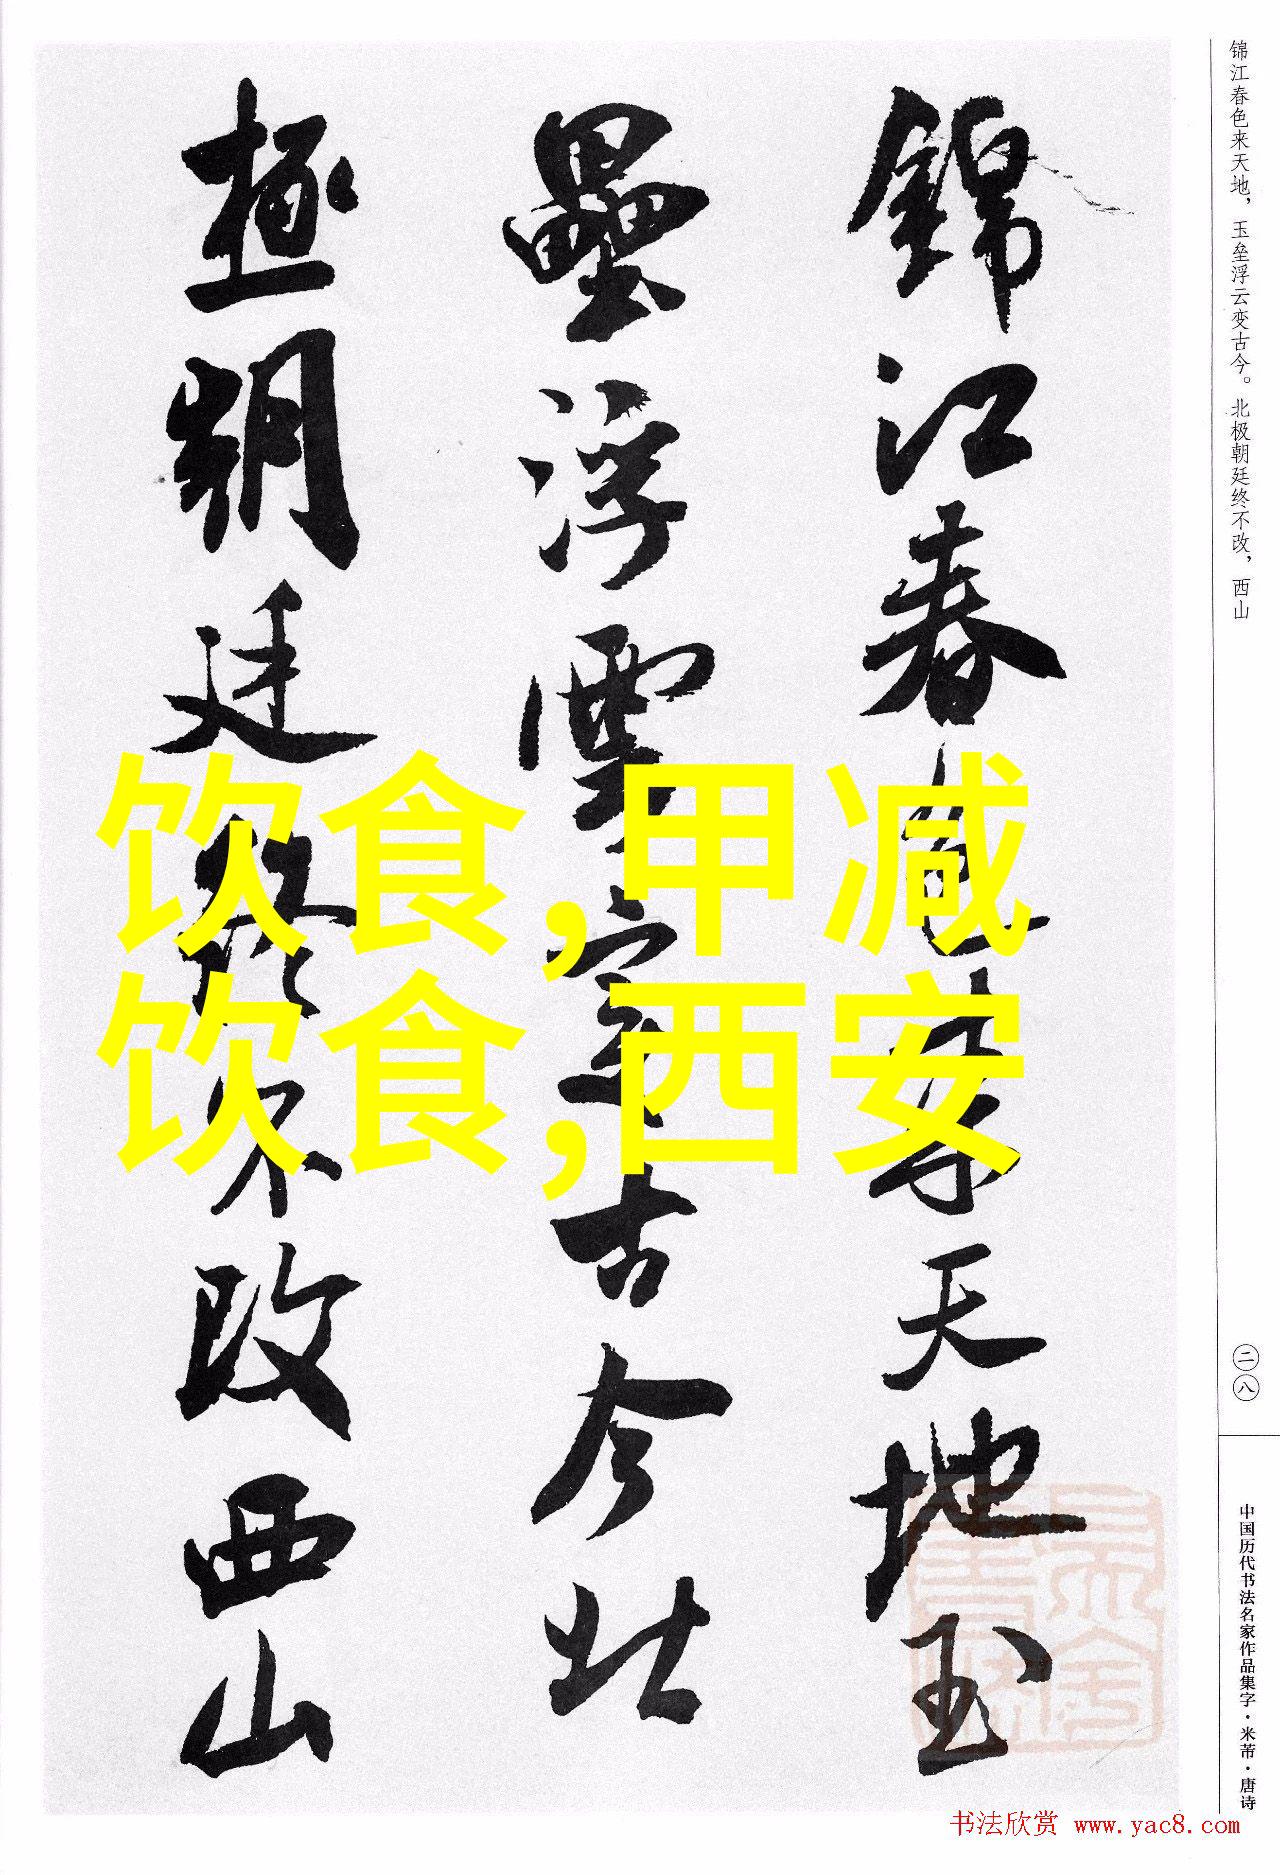 锦江春色来天地，玉垒浮云变古今。北极朝廷终不改，西山
錦江春色来天地玉
壘浮雲变古今北
極朝廷終不改西山
饮食,甲减
饮食,西安
二八
中国历代书法名家作品集字·米芾·唐诗
书法欣赏 www.yac8.com